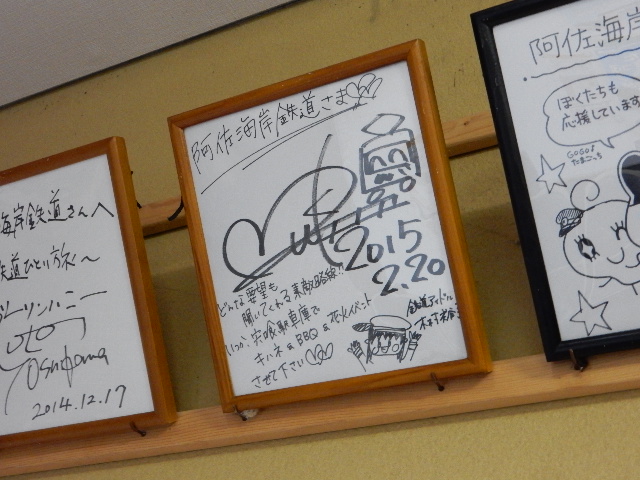 海岸鉄道さんへ
鉄道ひとり旅〜
ツーリンハニー
2014.12.17
阿佐海岸鉄道さま
2015
2.20
どんな要望も
聞いてくれる素敵路線!!
いつか宍喰駅車庫で
キハネ&BBQ&花火イベント
させて下さい
鉄道アイドル
木村裕子
阿佐海岸
ぼくたちも
応援しています
GOGO!
たまごっち